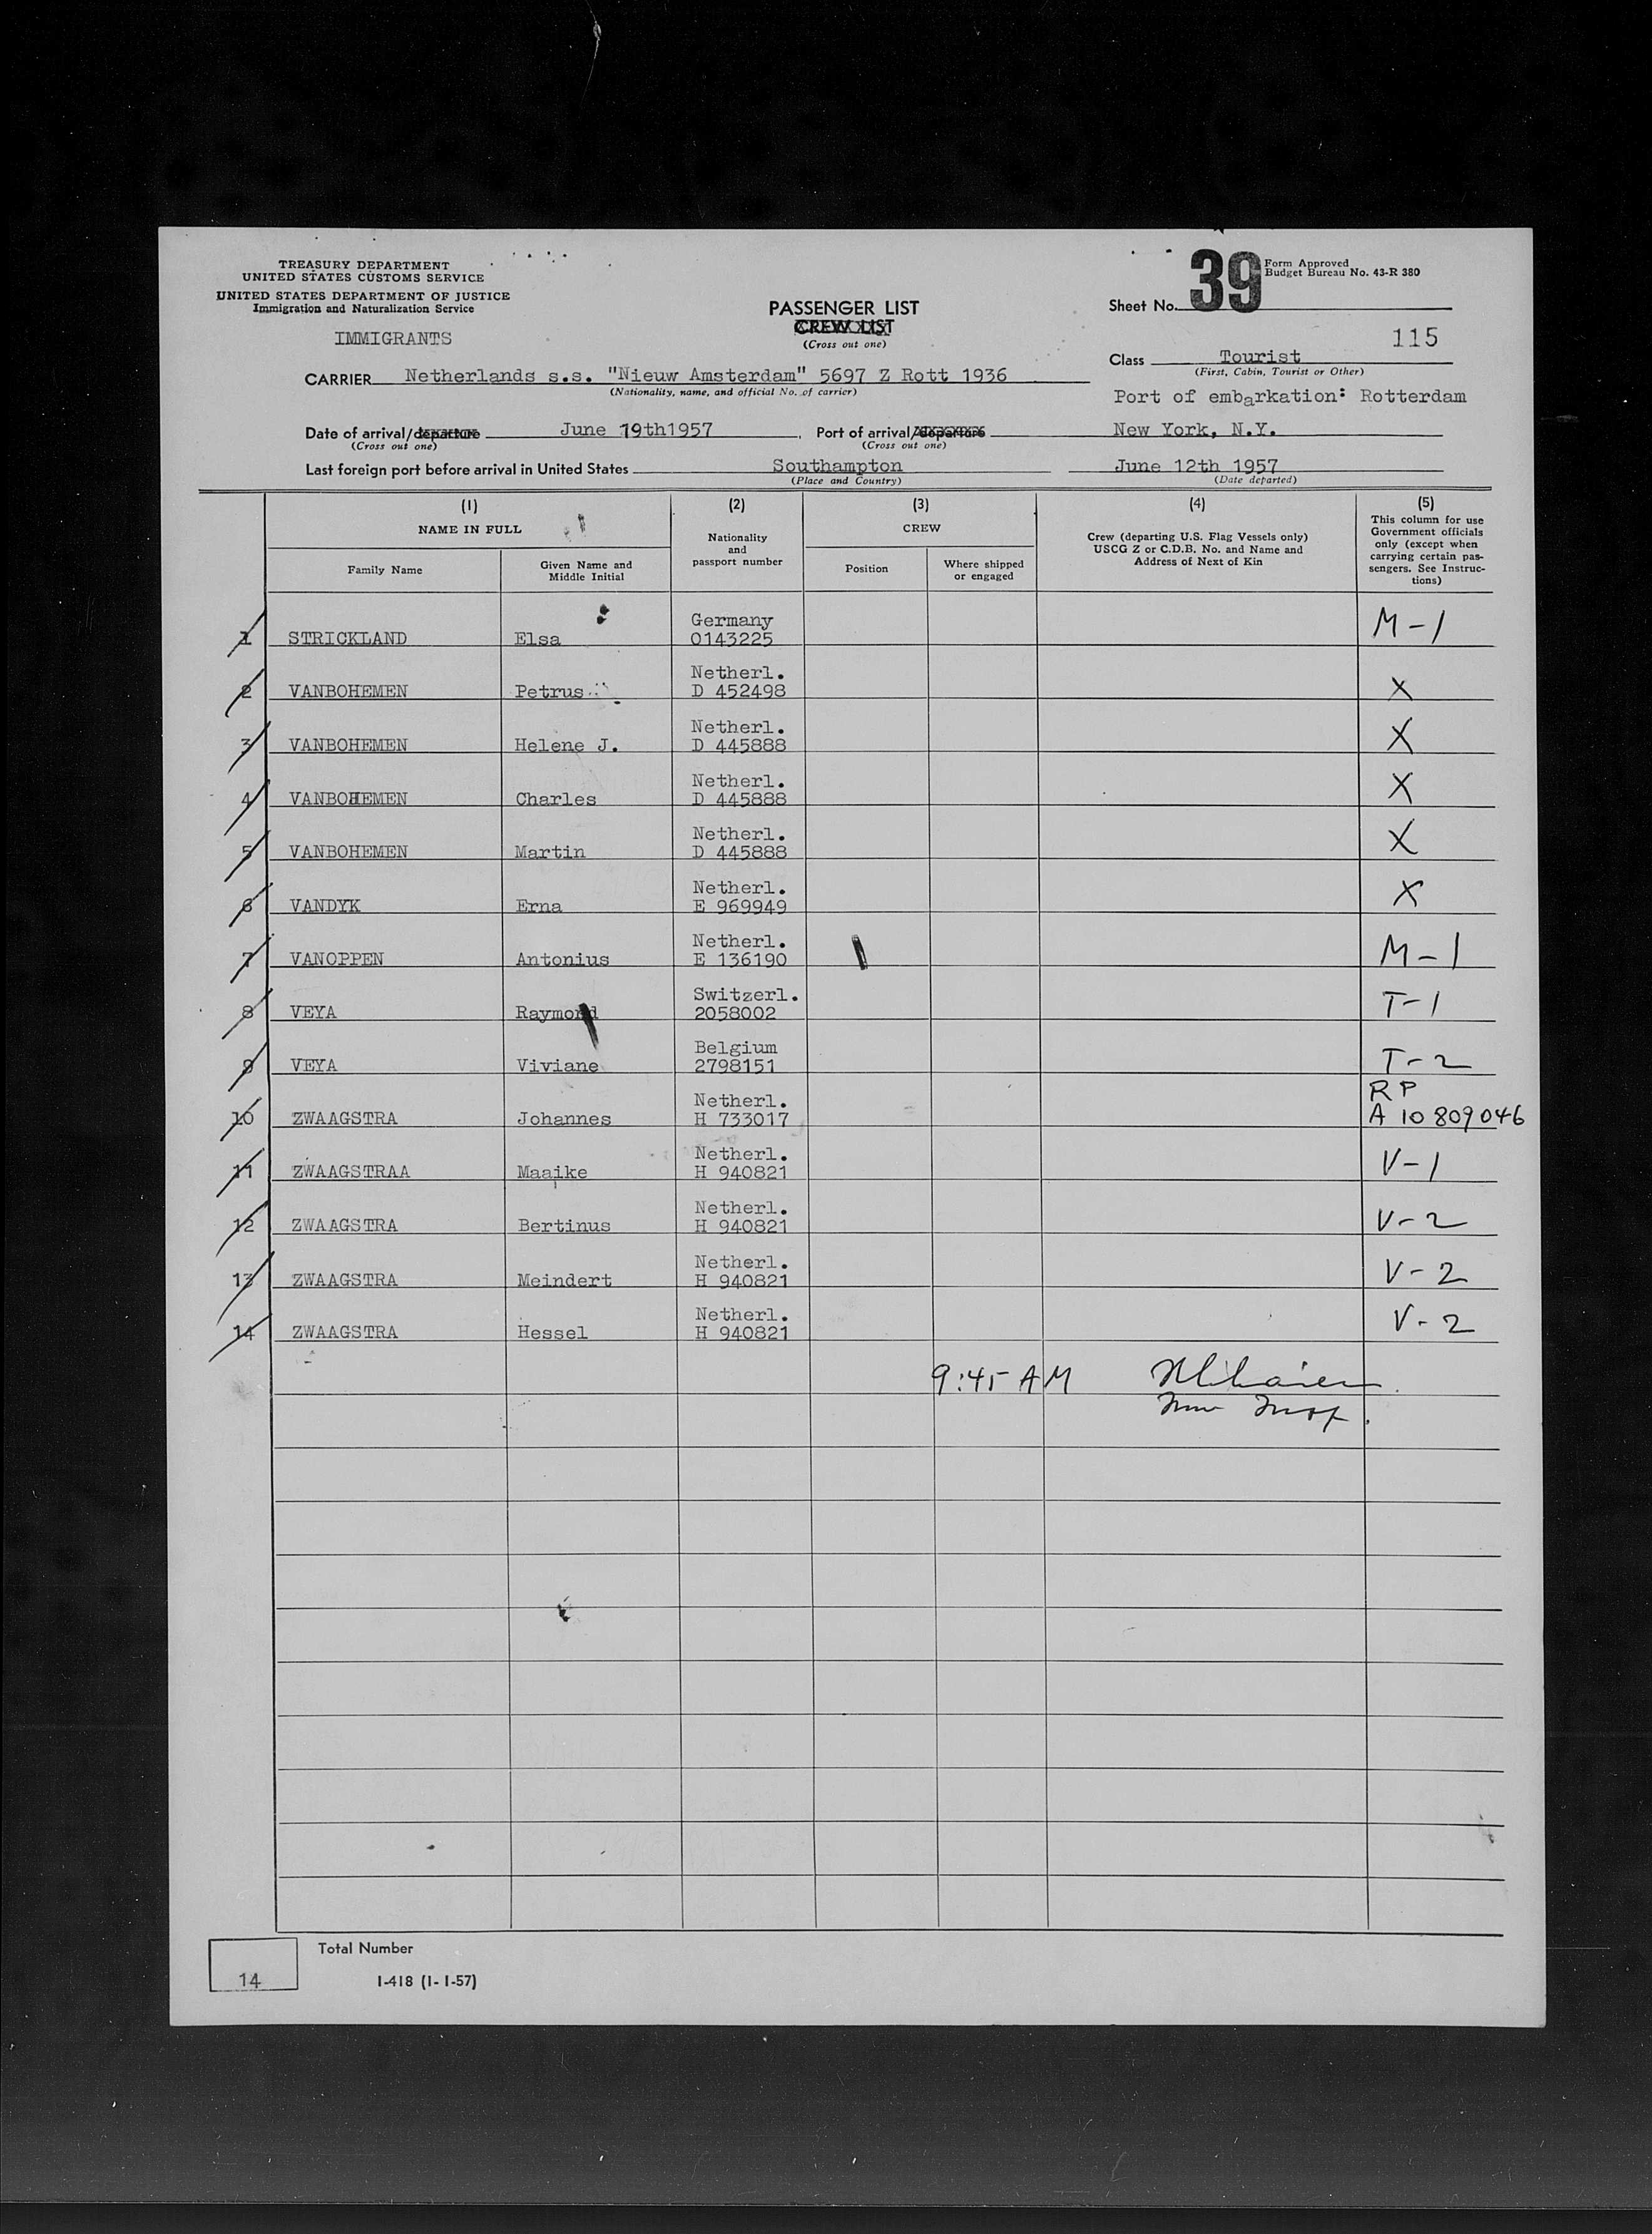 TREASURY DEPARTMENT
UNITED STATES CUSTOMS SERVICE
UNITED STATES DEPARTMENT OF JUSTICE
Immigration and Naturalization Service
IMMIGRANTS
PASSENGER LIST
CREW LIST
(Cross out one)
39
Form Approved
Budget Bureau No. 43-R 380
Sheet No.
115
Class Tourist
(First, Cabin, Tourist or Other)
CARRIER Netherlands s.s. "Nieuw Amsterdam" 5697 Z Rott 1936
(Nationality, name, and official No. of carrier)
Port of embarkation: Rotterdam
Date of arrival/departure June 19th1957, Port of arrival/departure New York, N.Y.
(Cross out one) (Cross out one)
Last foreign port before arrival in United States Southampton June 12th 1957
(Place and Country) (Date departed)
(1) (2) (3) (4) (5)
NAME IN FULL
Family Name
Given Name and
Middle Initial
Nationality
and
passport number
CREW
Position
Where shipped
or engaged
Crew (departing U.S. Flag Vessels only)
USCG Z or C.D.B. No. and Name and
Address of Next of Kin
This column for use
Government officials
only (except when
carrying certain pas-
sengers. See Instruc-
tions)
Germany
1 STRICKLAND Elsa 0143225 M-1
Netherl.
2 VANBOHEMEN Petrus D 452498 X
Netherl.
3 VANBOHEMEN Helene J. D 445888 X
Netherl.
4 VANBOHEMEN Charles D 445888 X
Netherl.
5 VANBOHEMEN Martin D 445888 X
Netherl.
6 VANDYK Erna E 969949 X
Netherl.
7 VANOPPEN Antonius E 136190 M-1
Switzerl.
8 VEYA Raymond 2058002 T-1
Belgium
9 VEYA Viviane 2798151 T-2
Netherl. RP
10 ZWAAGSTRA Johannes H 733017 A 10 809 046
Netherl.
11 ZWAAGSTRAA Maaike H 940821 V-1
Netherl.
12 ZWAAGSTRA Bertinus H 940821 V-2
Netherl.
13 ZWAAGSTRA Meindert H 940821 V-2
Netherl.
14 ZWAAGSTRA Hessel H 940821 V-2
9:45 AM
Total Number
14
I-418 (1-1-57)